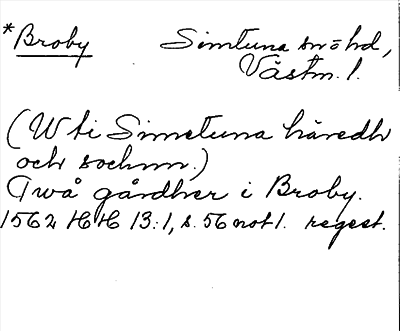 *Broby Simtuna sn o hd,
Västm. l.
(W ti Simetuna häredh
och sochnn.)
Twå gårdher i Broby.
1562 HH 13:1, s. 56 not 1. regest.